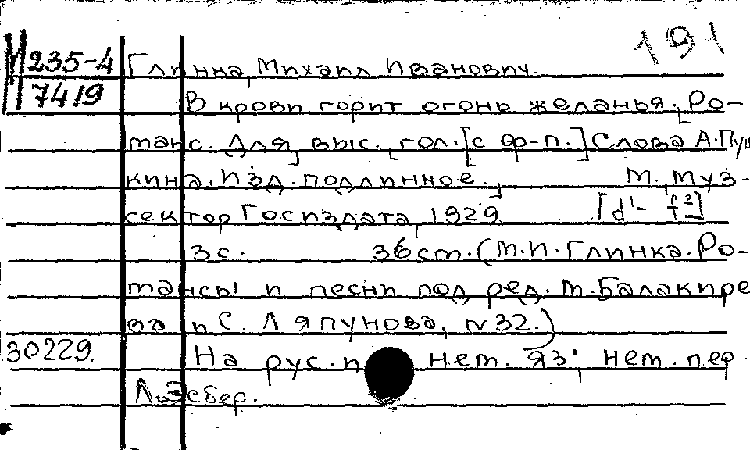 191
М 235-4
7419
Глинка, Михаил Иванович.
В крови горит огонь желанья. [Ро-
манс. Для выс. гол. [с ф-п.] Слова А. Пуш
кина. Изд. подлинное. М., Муз-
сектор Госиздата, 1929 [d¹- f²]
3с. 36ст. (М.И. Глинка. Ро-
мансы и песни под ред. М. Балакире
ва и С. Ляпунова, N 32.)
30229. На рус. и нем. яз; нем. пер
Эсбер.